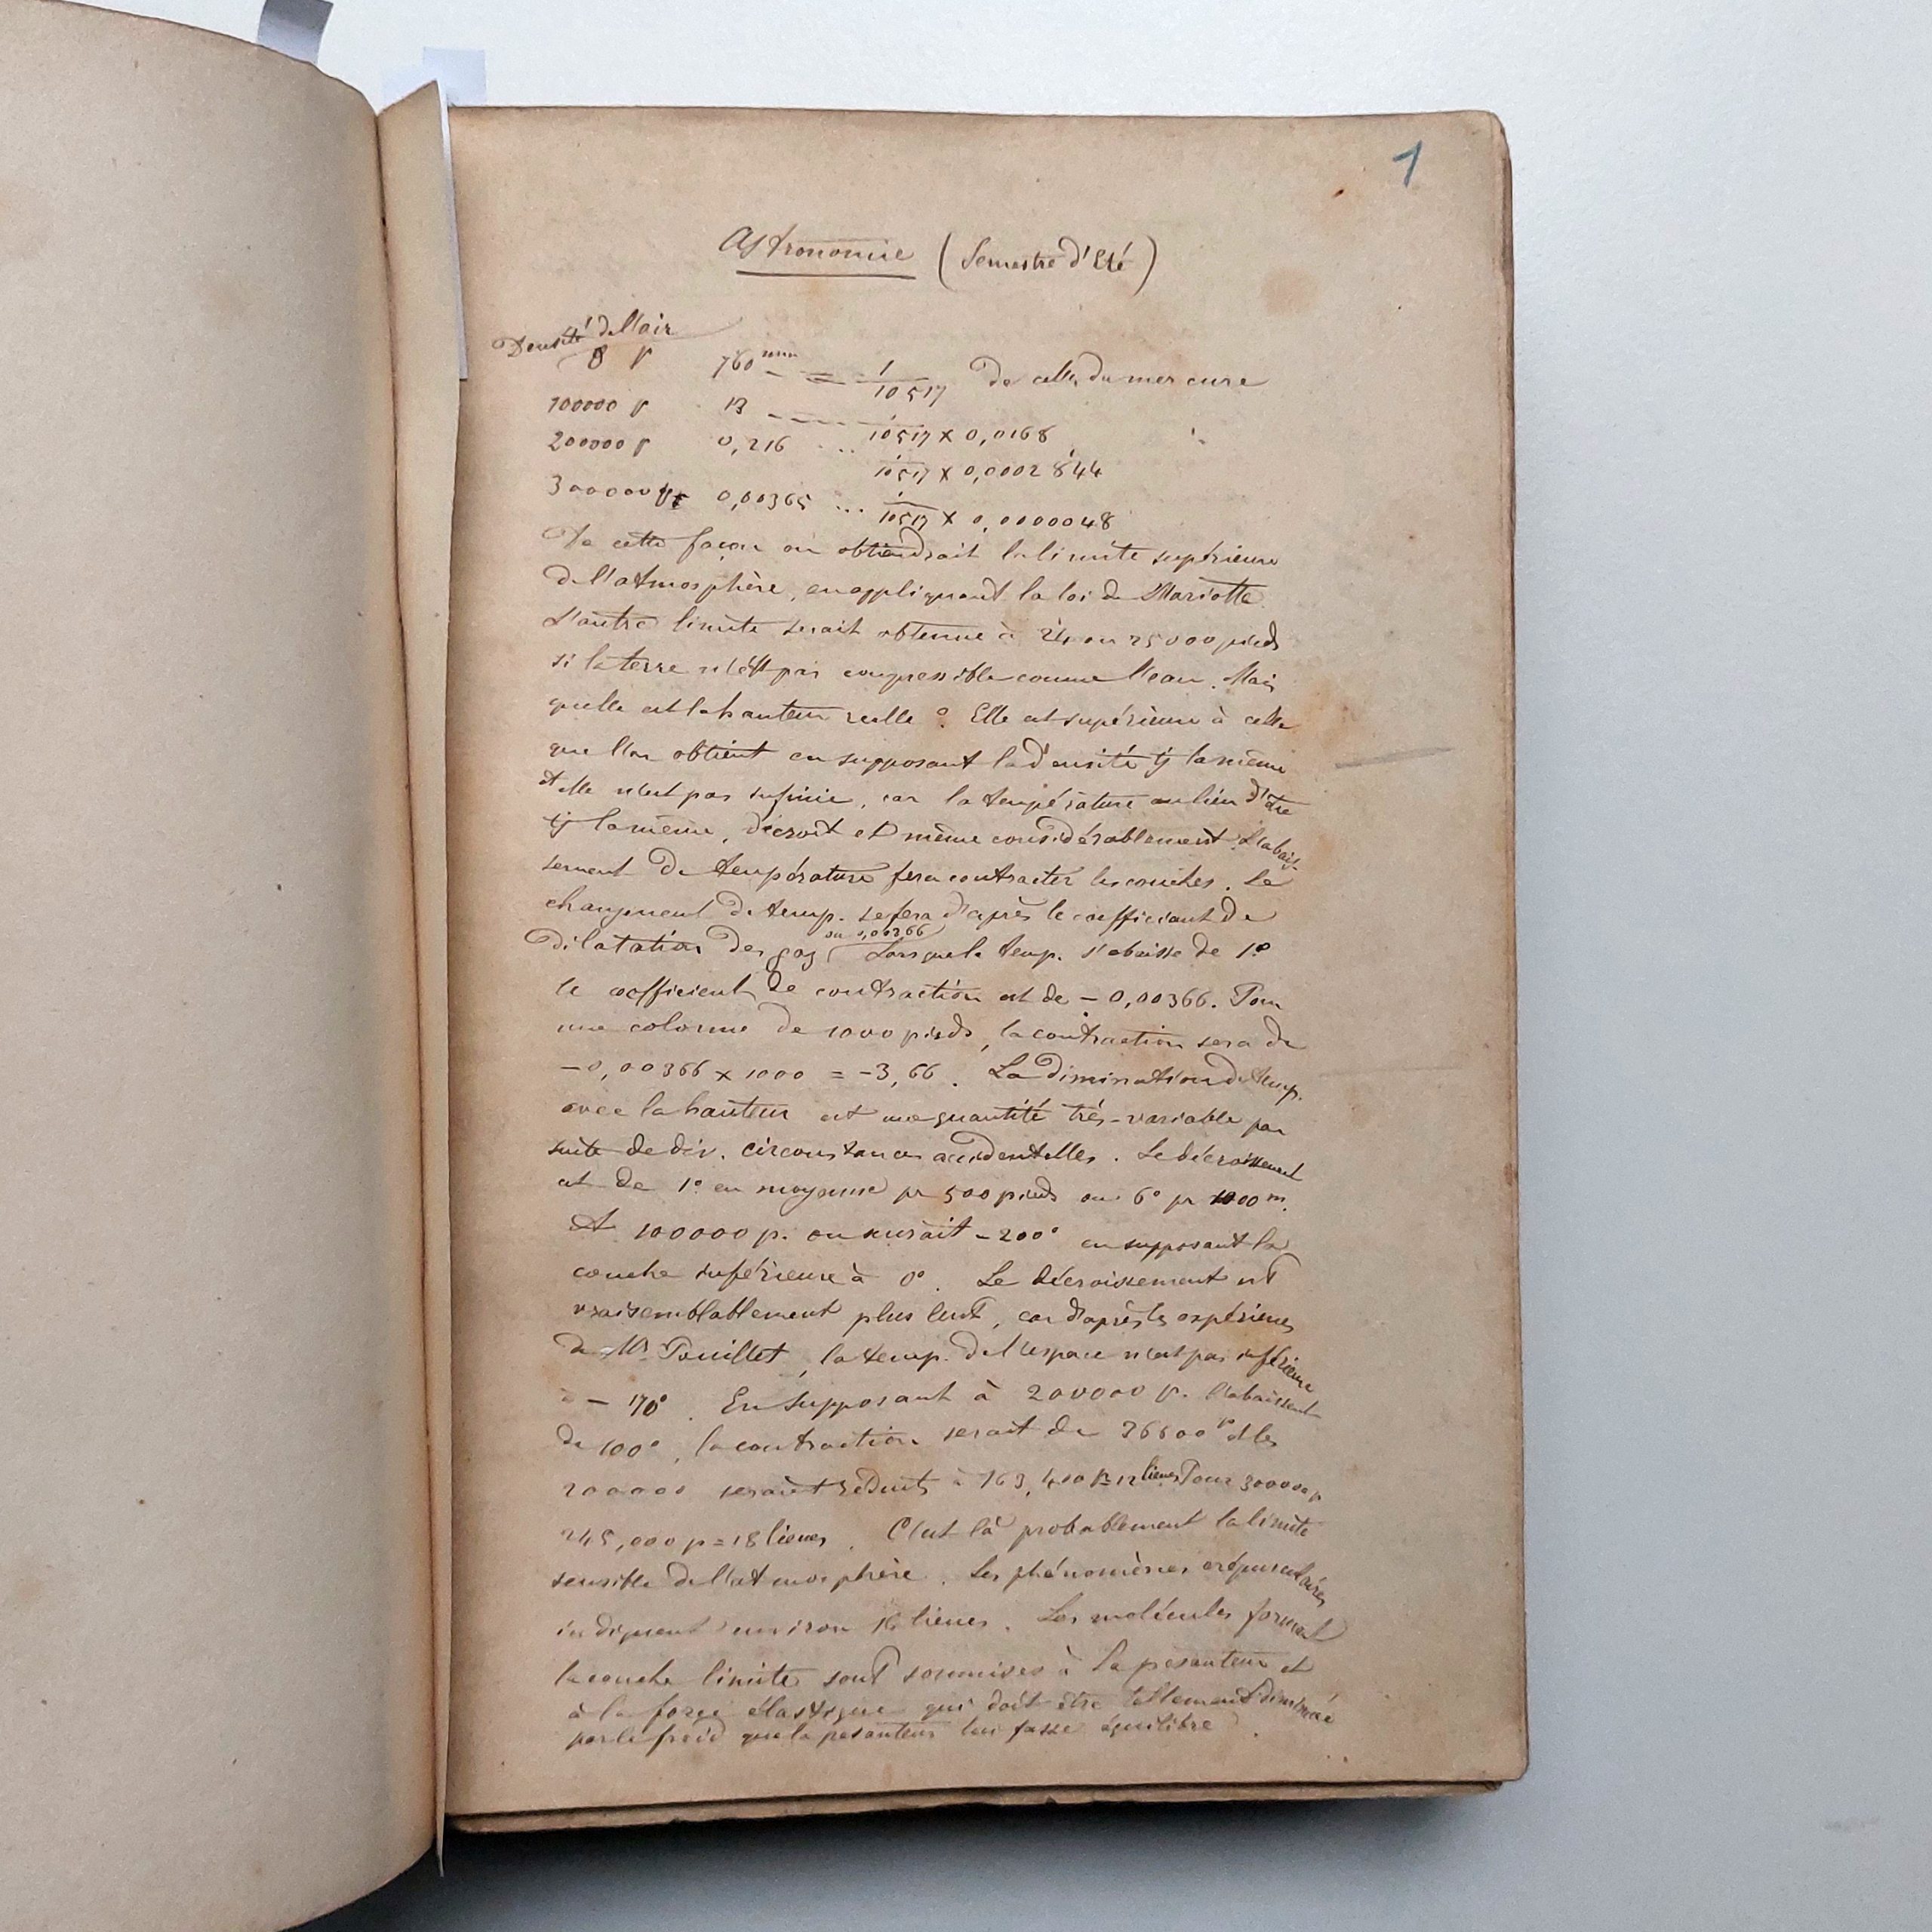 1
Astronomie (Semestre d'Eté)
Densité de l'air
0 p 760mm = 1/10517 de celle du mercure
100000 p 13 --- 1/10517 x 0,0168
200000 p 0,216 ... 1/10517 x 0,0002844
300000 p 0,00365 ... 1/10517 x 0,0000048
De cette façon on obtiendrait la limite supérieure
de l'atmosphère, en appliquant la loi de Mariotte.
L'autre limite serait obtenue à 24 ou 25000 pieds
si la terre n'est pas compressible comme l'eau. Mais
quelle est la hauteur réelle ? Elle est supérieure à celle
que l'on obtient en supposant la densité tj la même
et elle n'est pas infinie, car la température au lieu d'être
tj la même, décroit et même considérablement. L'abais-
sement de température fera contracter les couches. Le
changement de temp. se fera d'après le coefficient de
dilatation des gaz ou 0,00366 Lorsque la temp. s'abaisse de 1°
le coefficient de contraction est de – 0,00366. Pour
une colonne de 1000 pieds, la contraction sera de
– 0,00366 x 1000 = –3,66. La diminution de temp.
avec la hauteur est une quantité très-variable par
suite de div. circonstances accidentelles. Le décroissement
est de 1° en moyenne pr 500 pieds ou 6° pr 1000 m.
A 100000 p. on aurait – 200° en supposant la
couche inférieure à 0°. Le décroissement est
vraisemblablement plus lent, car d'après les expériences
de Mr Pouillet, la temp. de l'espace n'est pas inférieure
à – 170°. En supposant à 200000 p. l'abaissemt
de 100°, la contraction serait de 36600 p et les
200000 seraient réduits à 163,400 p = 12 lieues Pour 300000 p
245,000 p = 18 lieues. C'est là probablement la limite
sensible de l'atmosphère. Les phénomènes crépusculaires
indiquent environ 16 lieues. Les molécules formant
la couche limite sont soumises à la pesanteur et
à la force élastique qui doit être tellement diminuée
par le froid que la pesanteur lui fasse équilibre.